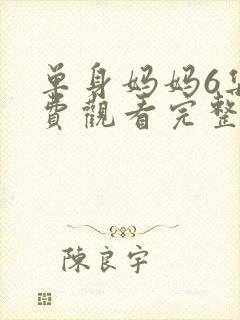 单身妈妈6集
費觀看完整
陳良宇